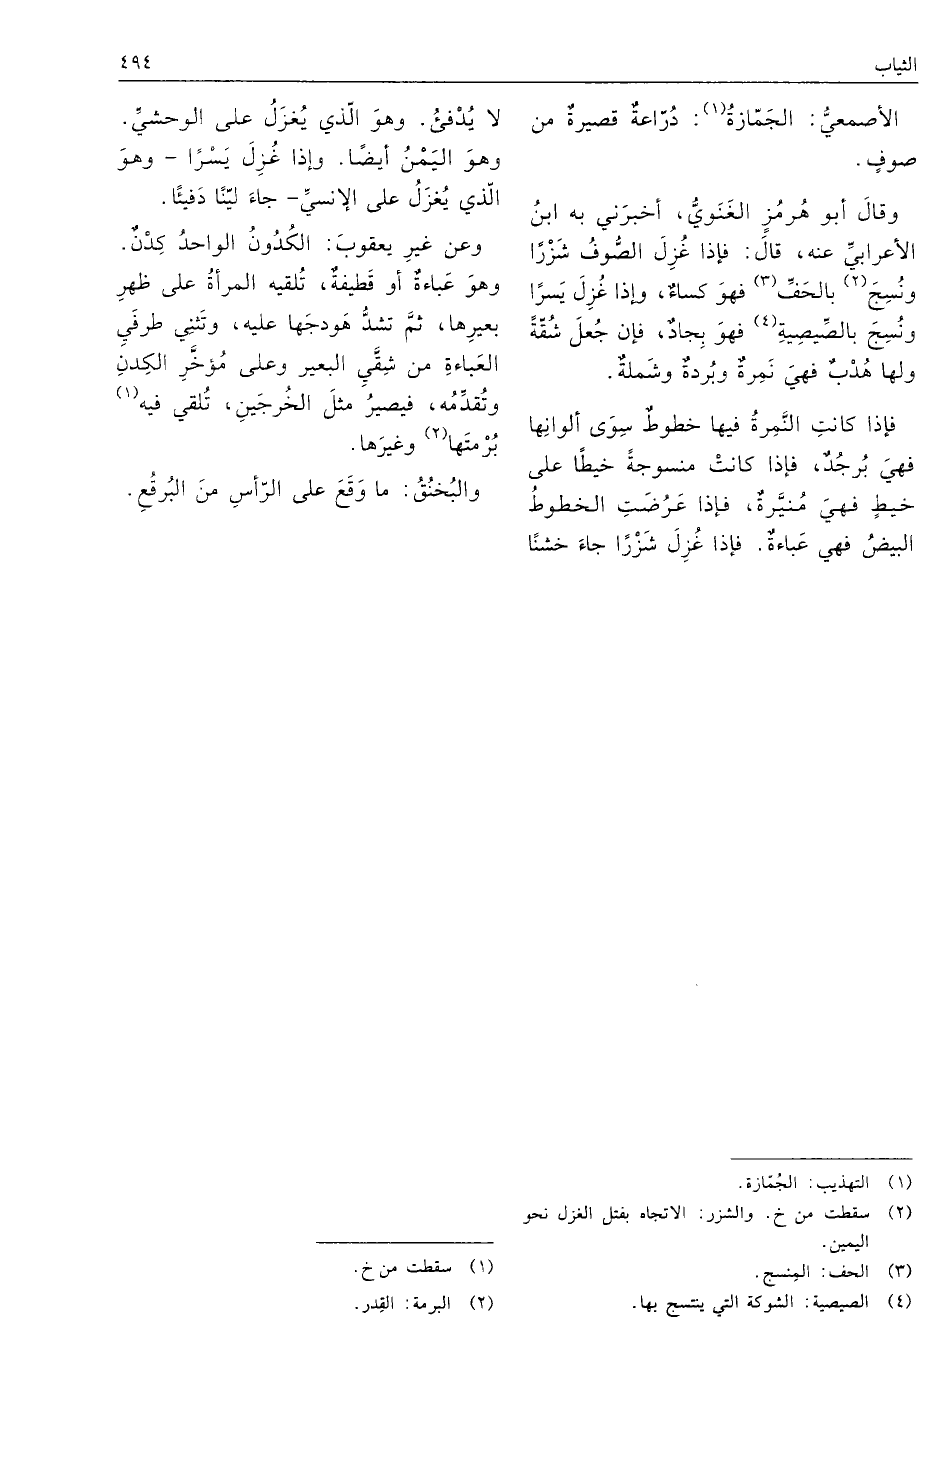 الثياب
٤٩٤
الأصمعيُّ: الجَمّازةُ(١): دُرّاعةٌ قصيرةٌ من
صوفٍ.
وقالَ أبو هُرمُزٍ الغَنَويُّ، أخبرَني به ابنُ
الأعرابيِّ عنه، قالَ: فإذا غُزِلَ الصُّوفُ شَزْرًا
ونُسِجَ(٢) بالحَفِّ(٣) فهوَ كساءٌ، وإذا غُزِلَ يَسرًا
ونُسِجَ بالصِّيصِيةِ(٤) فهوَ بِجادٌ، فإن جُعلَ شُقّةً
ولها هُدْبٌ فهيَ نَمِرةٌ وبُردةٌ وشَملةٌ.
فإذا كانتِ النَّمِرةُ فيها خطوطٌ سِوَى ألوانِها
فهيَ بُرجُدٌ، فإذا كانتْ منسوجةً خيطًا على
خيطٍ فهيَ مُنيَّرةٌ، فإذا عَرُضَتِ الخطوطُ
البيضُ فهي عَباءةٌ. فإذا غُزِلَ شَزْرًا جاءَ خشنًا
لا يُدْفئُ. وهوَ الّذي يُغزَلُ على الوحشيِّ.
وهوَ اليَمْنُ أيضًا. وإذا غُزِلَ يَسْرًا - وهوَ
الّذي يُغزَلُ على الإنسيِّ- جاءَ ليّنًا دَفيئًا.
وعن غيرِ يعقوبَ: الكُدُونُ الواحدُ كِدْنٌ.
وهوَ عَباءةٌ أو قَطيفةٌ، تُلقيه المرأةُ على ظهرِ
بعيرِها، ثمَّ تشدُّ هَودجَها عليه، وتَثنِي طرفَيِ
العَباءةِ من شِقَّيِ البعير وعلى مُؤخَّرِ الكِدنِ
وتُقدِّمُه، فيصيرُ مثلَ الخُرجَينِ، تُلقي فيه(١)
بُرْمتَها(٢) وغيرَها.
والبُخنُقُ: ما وَقَعَ على الرّأسِ منَ البُرقُعِ.
(١) التهذيب: الجُمّازة.
(٢) سقطت من خ. والشزر: الاتجاه بفتل الغزل نحو
اليمين.
(٣) الحف: المِنسج.
(٤) الصيصية: الشوكة التي ينتسج بها.
(١) سقطت من خ.
(٢) البرمة: القِدر.